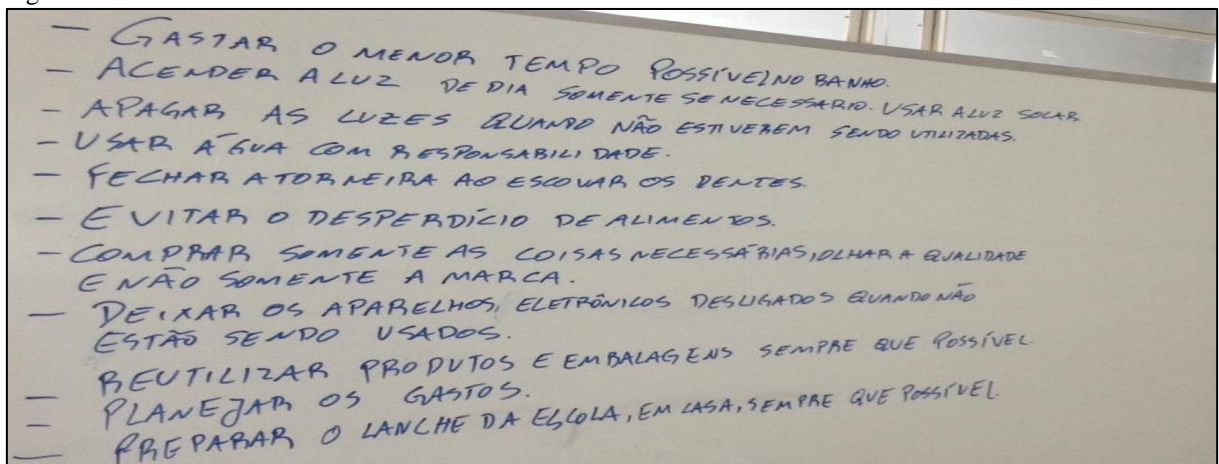 — GASTAR O MENOR TEMPO POSSÍVEL NO BANHO.
— ACENDER A LUZ DE DIA SOMENTE SE NECESSÁRIO. USAR A LUZ SOLAR
— APAGAR AS LUZES QUANDO NÃO ESTIVEREM SENDO UTILIZADAS.
— USAR ÁGUA COM RESPONSABILIDADE.
— FECHAR A TORNEIRA AO ESCOVAR OS DENTES.
— EVITAR O DESPERDÍCIO DE ALIMENTOS.
— COMPRAR SOMENTE AS COISAS NECESSÁRIAS, OLHAR A QUALIDADE
E NÃO SOMENTE A MARCA.
— DEIXAR OS APARELHOS, ELETRÔNICOS DESLIGADOS QUANDO NÃO
ESTÃO SENDO USADOS.
— REUTILIZAR PRODUTOS E EMBALAGENS SEMPRE QUE POSSÍVEL.
— PLANEJAR OS GASTOS.
— PREPARAR O LANCHE DA ESCOLA, EM CASA, SEMPRE QUE POSSÍVEL